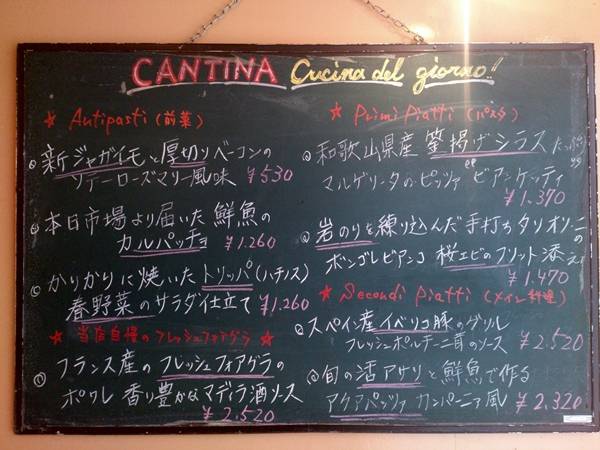 CANTINA Cucina del giorno!!
★ Antipasti (前菜)
新ジャガイモと厚切りベーコンの
ソテーローズマリー風味 ¥530
本日市場より届いた鮮魚の
カルパッチョ ¥1.260
かりかりに焼いたトリッパ(ハチノス)
春野菜のサラダ仕立て ¥1.260
★ 当店自慢のフレッシュフォアグラ ★
① フランス産のフレッシュフォアグラの
ポワレ 香り豊かなマディラ酒ソース
¥2.520
★ Primi Piatti (パスタ)
和歌山県産 釜揚げシラス たっぷり
マルゲリータのピッツァ or ビアンケッティ
¥1.370
岩のりを練り込んだ手打ちタリオリーニの
ボンゴレビアンコ 桜エビのフリット添え
¥1.470
★ Secondi Piatti (メイン料理)
スペイン産イベリコ豚のグリル
フレッシュポルチーニ茸のソース ¥2.520
旬の活アサリと鮮魚で作る
アクアパッツァ カンパーニア風 ¥2.320